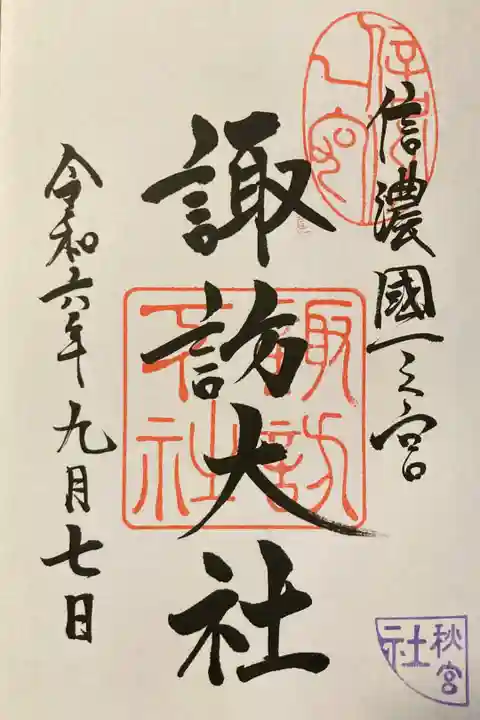 信濃國一之宮
諏訪大社
令和六年九月七日
信濃
一宮
諏訪
大社
秋宮
社